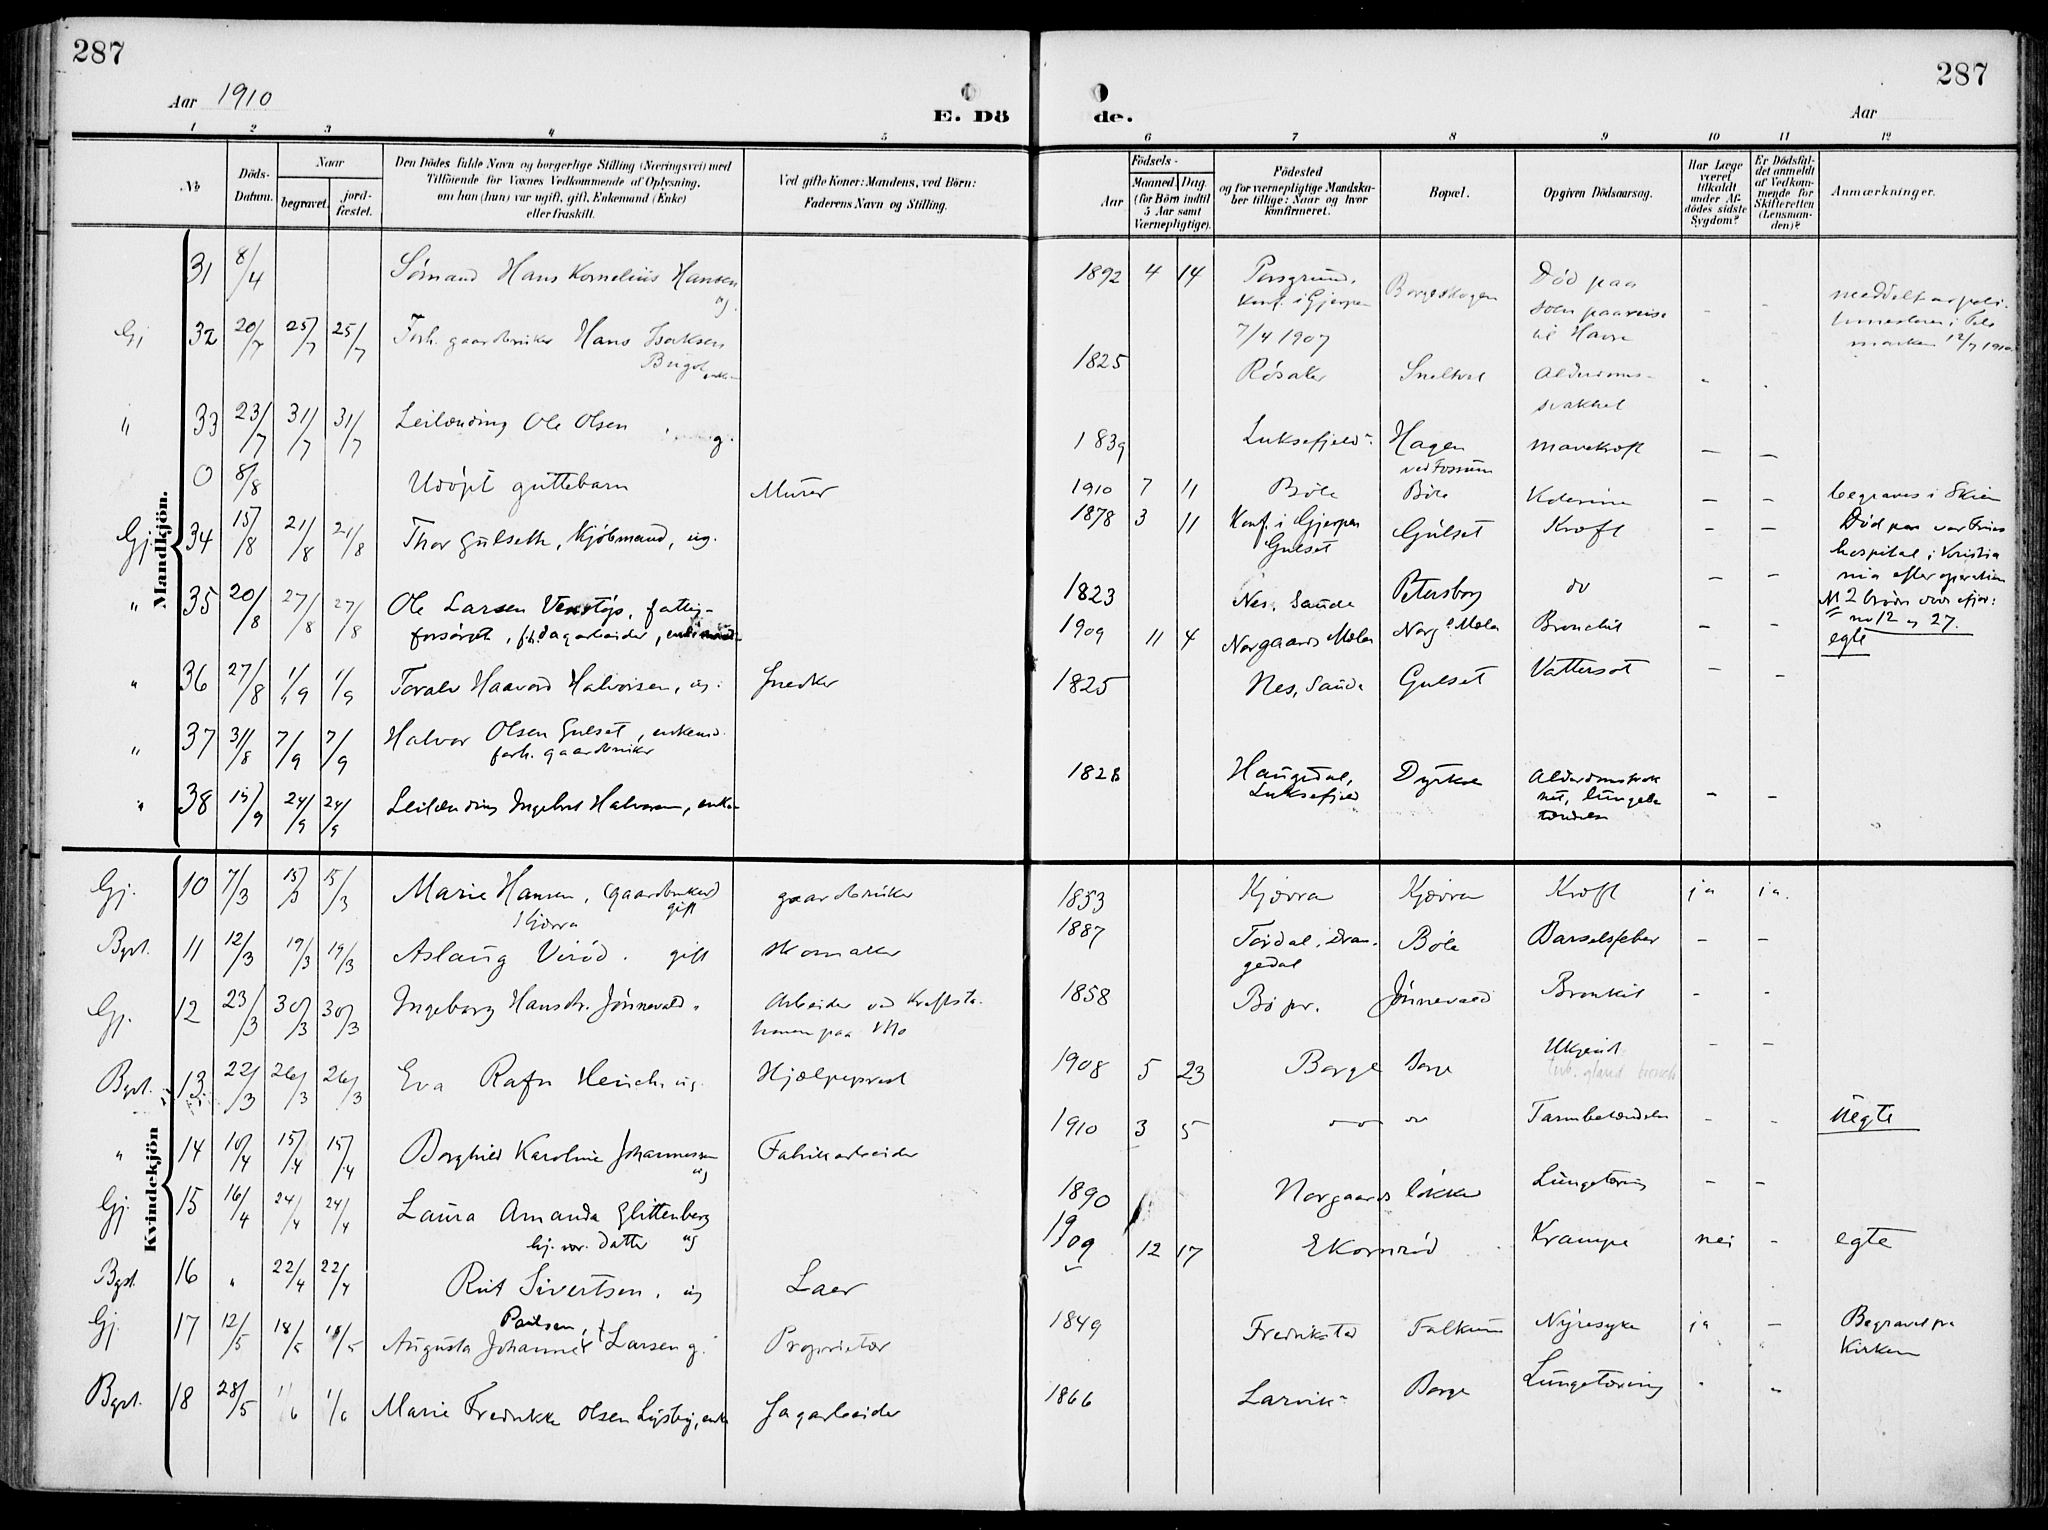 287
287
Aar 1910
E. Dö
de.
Aar
1 2 3 4 5 6 7 8 9 10 11 12
No
Döds-Datum.
Naar
begravet.
jord-fæstet.
Den Dödes fulde Navn og borgerlige Stilling (Næringsvei) med
Tilföiende for Voxnes Vedkommende af Oplysning,
om han (hun) var ugift, gift, Enkemand (Enke)
eller fraskilt.
Ved gifte Koner: Mandens, ved Börn:
Faderens Navn og Stilling.
Födsels-
Aar
Maaned. Dag.
(for Börn indtil
5 Aar samt
Værnepligtige).
Födested
og for værnepligtige Mandska-
ber tillige: Naar og hvor
konfirmeret.
Bopæl.
Opgiven Dödsaarsag.
Har Læge
været
tilkaldt
under Af-
dödes sidste
Sygdom?
Er Dödsfal-
det anmeldt
af Vedkom-
mende for
Skifteretten
(Lensman-
den)?
Anmærkninger.
Mandkjön.
31 8/4 Sömand Hans Kornelius Hansen ug 1892 4 14 Porsgrund, Konf. i Gjerpen 7/4 1907 Borgeskogen Död paa
Gj 32 20/7 25/7 25/7 Forh. gaardbruker Hans Isaksen 1825 Rösaker Alderdoms-svakhet
" 33 23/7 31/7 31/7 Leilænding Ole Olsen g. 1839 Luksefjeld Hagen ved Fossum mavekræft — —
0 8/8 Udöpt guttebarn Murer 1910 7 11 Böle Böle — — begraves i Skien
Gj. 34 15/8 21/8 21/8 Thor Gulseth, Kjöbmand, ug. 1878 3 11 Konf. i Gjerpen Gulset Gulset Kræft — — Död paa vor Frues hospital i Kristiania efter operation
" 35 20/8 27/8 27/8 Ole Larsen Venstöp, fattig-
forsörget, fh. dagarbeider, 1823 Nes, Saude Petersborg do — —
no 12 og 27.
" 36 27/8 1/9 1/9 Toralv Haavord Halvorsen, ug. Snedker 1909 11 4 Norgaards Mæla Norg. Mæla Bronchit — — egte
" 37 31/8 7/9 7/9 Halvor Olsen Gulset, enkemd.
forh. gaardbruker 1825 Nes, Saude Gulset Vattersot — —
" 38 15/9 24/9 24/9 Leilænding Ingebret Halvorsen, enkem 1828 Haugedal, Luksefjeld — —
Kvindekjön
Gj. 10 7/3 15/3 15/3 Marie Hansen, (gaardbruker) gift
Kjörra gaardbruker 1853 Kjörra Kjörra Kræft ja ia.
Bgst. 11 12/3 19/3 19/3 Aslaug Viröd. gift skomaker 1887 Tördal, Dran-
gedal Böle Barselsfeber — —
Gj. 12 23/3 30/3 30/3 Ingeborg Hansdtr. Jönnevald Arbeider ved Kraftsta-
tionen paa Mo 1858 Bö pr. Jönnevald Bronkit — —
Bgst. 13 22/3 26/3 26/3 Eva Rafn Hench ug. Hjælpeprest 1908 5 23 Borge Borge Ukjendt — —
" 14 10/4 15/4 15/4 Borghild Karoline Johannessen ug Fabrikarbeider 1910 3 5 —o— do Tarmbetændelse — — uegte
Gj. 15 16/4 24/4 24/4 Laura Amanda Glittenberg
hj. vær. datter ug 1890 Norgaards lökke Lungetæring — —
Bgst. 16 " 22/4 22/4 Rut Sivertsen, ug Laer 1909 12 17 Ekornröd Krampe nei — egte
Gj. 17 12/5 18/5 18/5 Paulsen,
Augusta Johanne Larsen g. Proprietær 1849 Fredrikstad Falkum Nyresyke ja — Begravet fra Kirken
Bgst. 18 28/5 1/6 1/6 Marie Fredrikke Olsen Lysby, enke Sagarbeider 1866 Larvik Borge Lungetæring